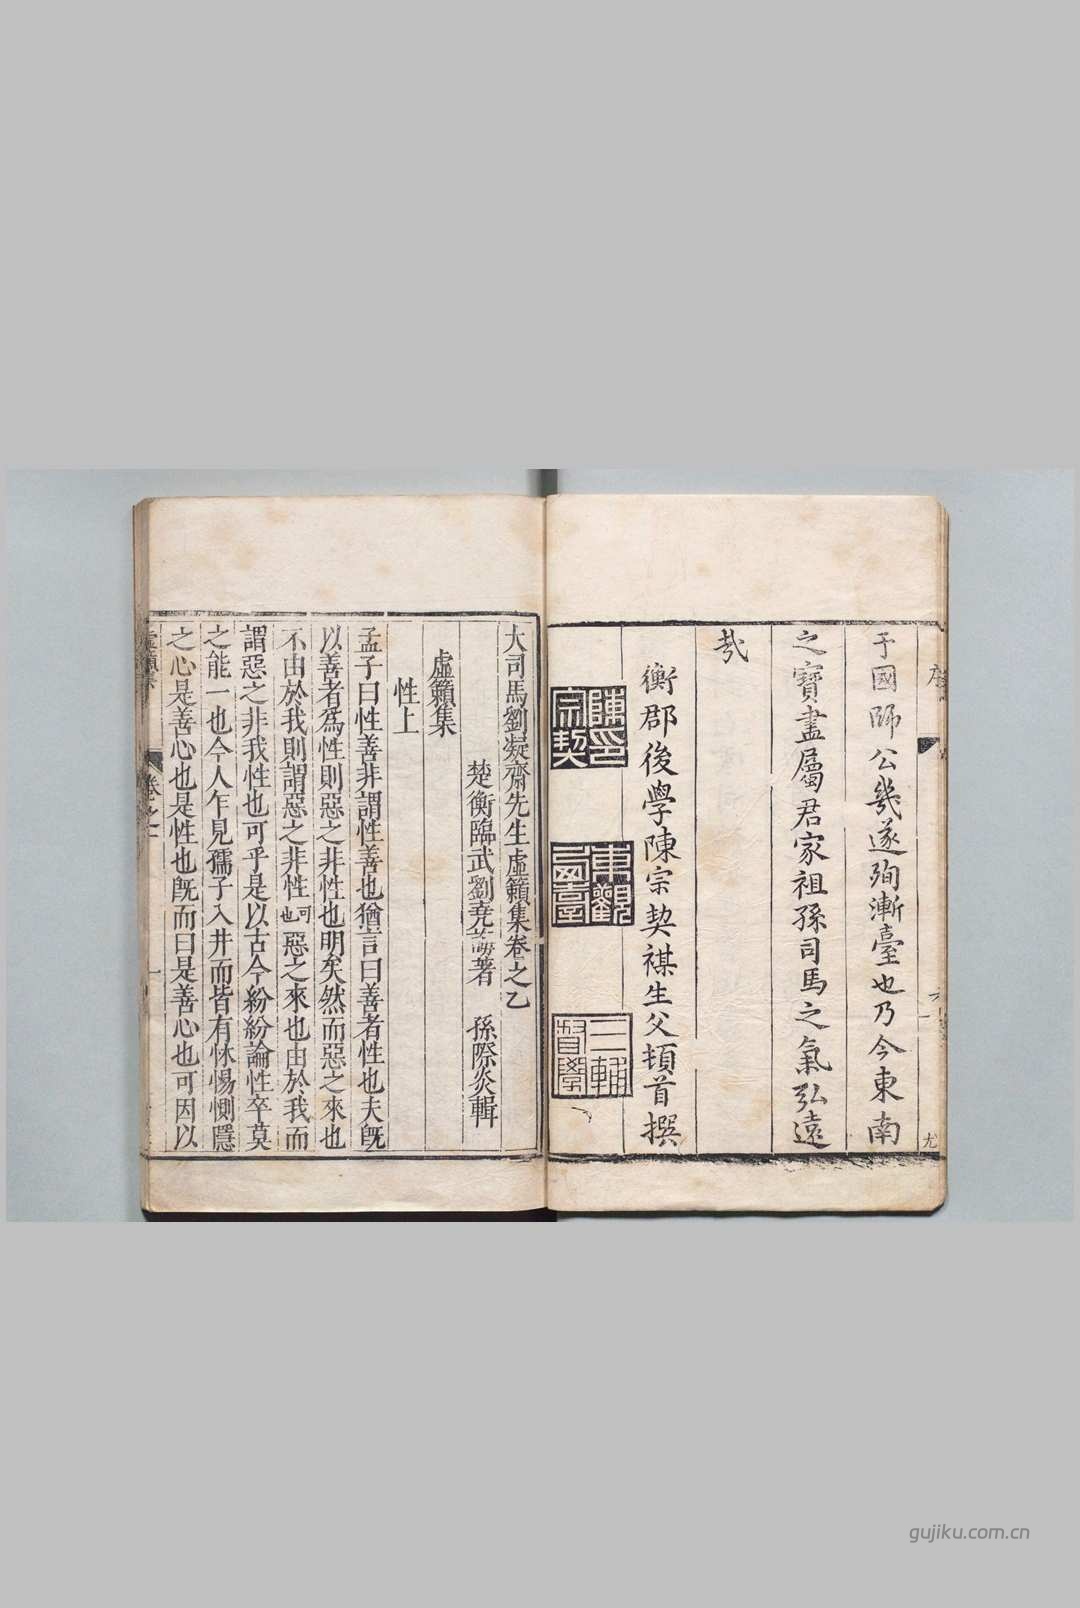 于國師公幾遂殉漸臺也乃今東南
之寶盡屬君家祖孫司馬之氣弘遠
哉
衡郡後學陳宗契禖生父頓首撰
陳印宗契
東觀
三輔督學
大司馬劉凝齋先生虛籟集卷之乙
楚衡臨武劉堯誨著 孫際炎輯
虛籟集
性上
孟子曰性善非謂性善也猶言曰善者性也夫旣
以善者爲性則惡之非性也明矣然而惡之來也
不由於我則謂惡之非性可也惡之來也由於我而
謂惡之非我性也可乎是以古今紛紛論性卒莫
之能一也今人乍見孺子入井而皆有怵惕惻隱
之心是善心也是性也旣而曰是善心也可因以
虛籟集 卷之 一
gujiku.com.cn